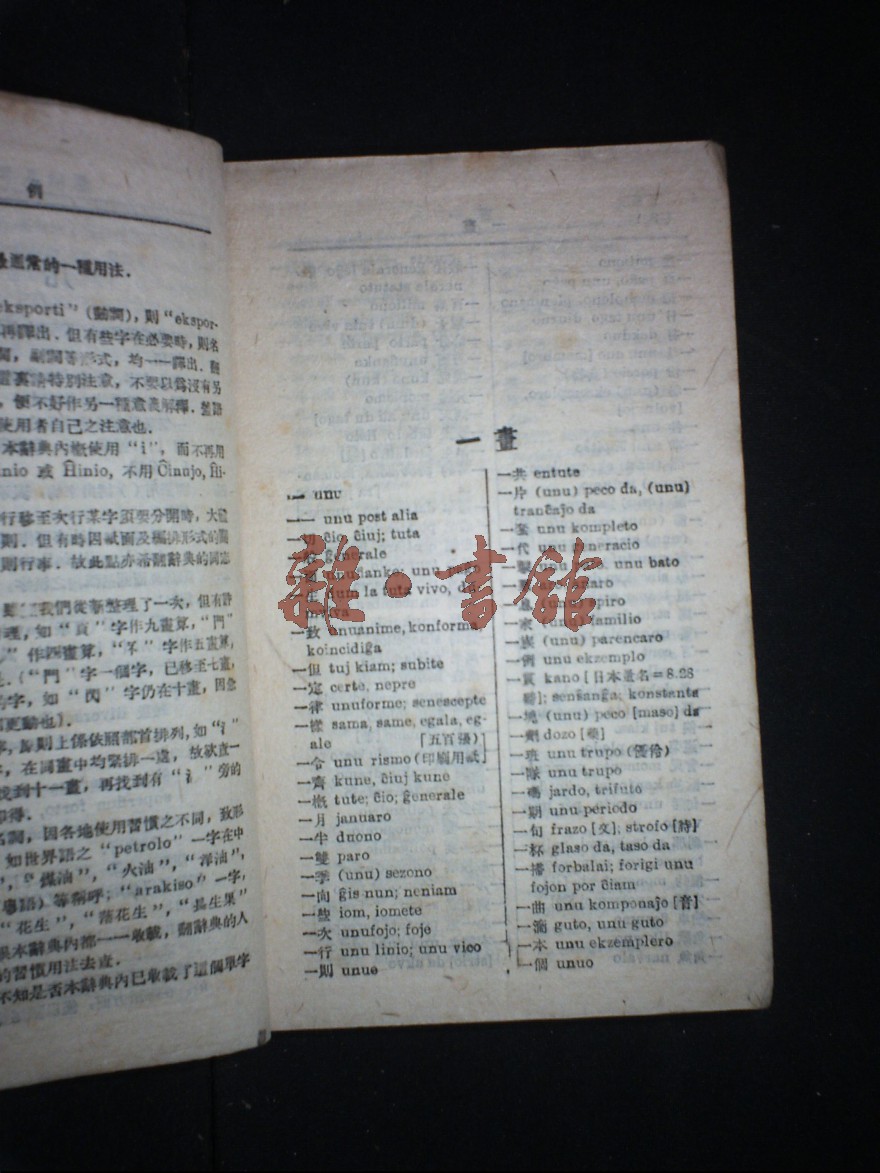 例
最通常的一種用法．
eksporti”（動詞），則“ekspor-
再譯出．但有些字在必要時，則名
詞，副詞等形式，均一一譯出．翻
特別注意，不要以爲沒有另
，便不好作另一種意義解釋．
使用者自己之注意也．
本辭典內概使用“i”，而不再用
inio 或 Ĥinio, 不用 Ĉinujo, Ĥi-
行移至次行某字須要分開時，大
則．但有時因紙面及編排形式的關
則行事．故此點亦希翻辭典的同志
我們從新整理了一次，但有許
理，如“頁”字作九畫算，“門”
”作四畫算，字作五畫算，
（“門”字一個字，已移至七畫，
的字，如“閃”字仍在十畫，因愈
更動也）．
字，原則上係依照部首排列，如“氵”
字，在同畫中均緊排一處，故欲查一
找到十一畫，再找到有“氵”旁的
即得．
名詞，因各地使用習慣之不同，致形
如世界語之“petrolo”一字在中
”，“煤油”，“火油”，“洋油”，
粵語）等稱呼；“arakiso”一字，
“花生”，“落花生”，“長生果”
本辭典內都一一收載，翻辭典的人
的習慣用法去查．
不知是否本辭典內已收載了這個單字
一畫
一 unu
一一 unu post alia
一切 ĉio, ĉiuj; tuta
ĝenerale
unuflanke; unu
一生 dum la tuta vivo, du
viva
一致 unuanime, konforma,
koincidiĝa
一但 tuj kiam; subite
一定 certe, nepre
一律 unuforme; senescepte
一樣 sama, same, egala, eg-
ale [五百張]
一令 unu rismo (印刷用紙)
一齊 kune, ĉiuj kune
一概 tute; ĉio; ĝenerale
一月 januaro
一半 duono
一雙 paro
一季 (unu) sezono
一向 ĝis nun; neniam
一些 iom, iomete
一次 unufojo; foje
一行 unu linio; unu vico
一則 unue
一共 entute
一片 (unu) peco da, (unu)
tranĉajo da
一套 unu kompleto
一代 unu generacio
unu bato
一息 (unu) spiro
一家 (unu) familio
一族 (unu) parencaro
一例 unu ekzemplo
一貫 kano [日本量名=8.28
磅]; senŝanĝa; konstanta
一塊 (unu) peco [maso] da
一劑 dozo [藥]
一班 unu trupo (優伶)
一隊 unu trupo
一碼 jardo, trifuto
一期 unu periodo
一句 frazo [文]; strofo [詩]
一杯 glaso da, taso da
一掃 forbalai; forigi unu
fojon por ĉiam
一曲 unu komponajo [音]
一滴 guto, unu guto
一本 unu ekzemplero
一個 unuo
雜·書館